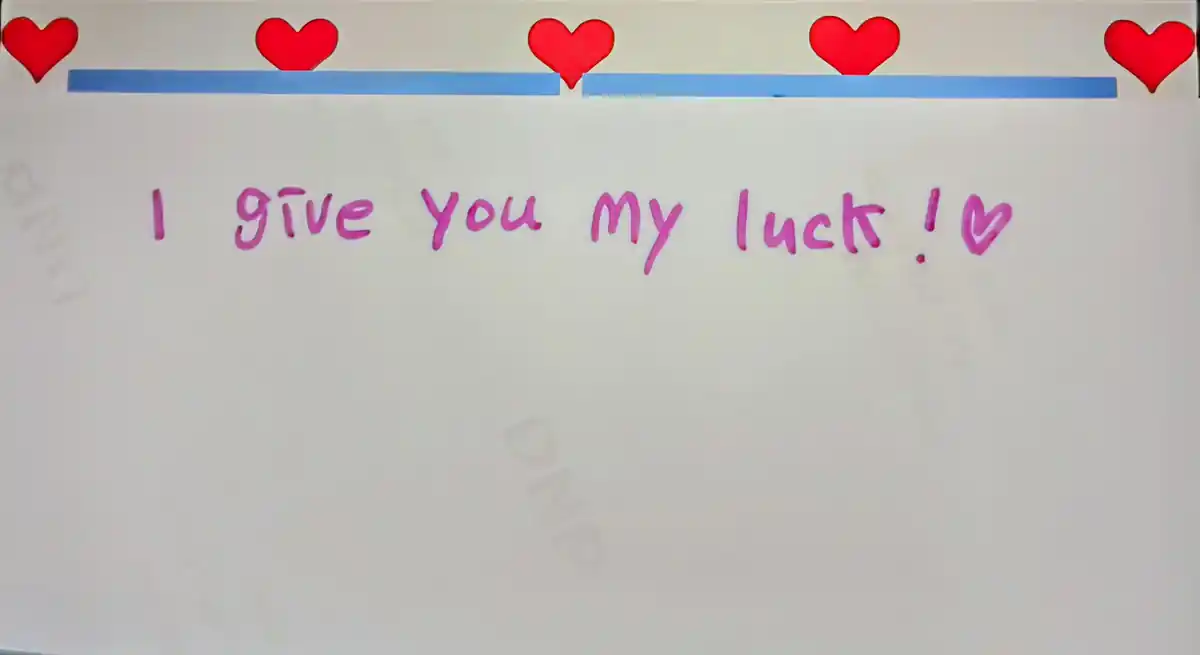 I give you my luck!♡